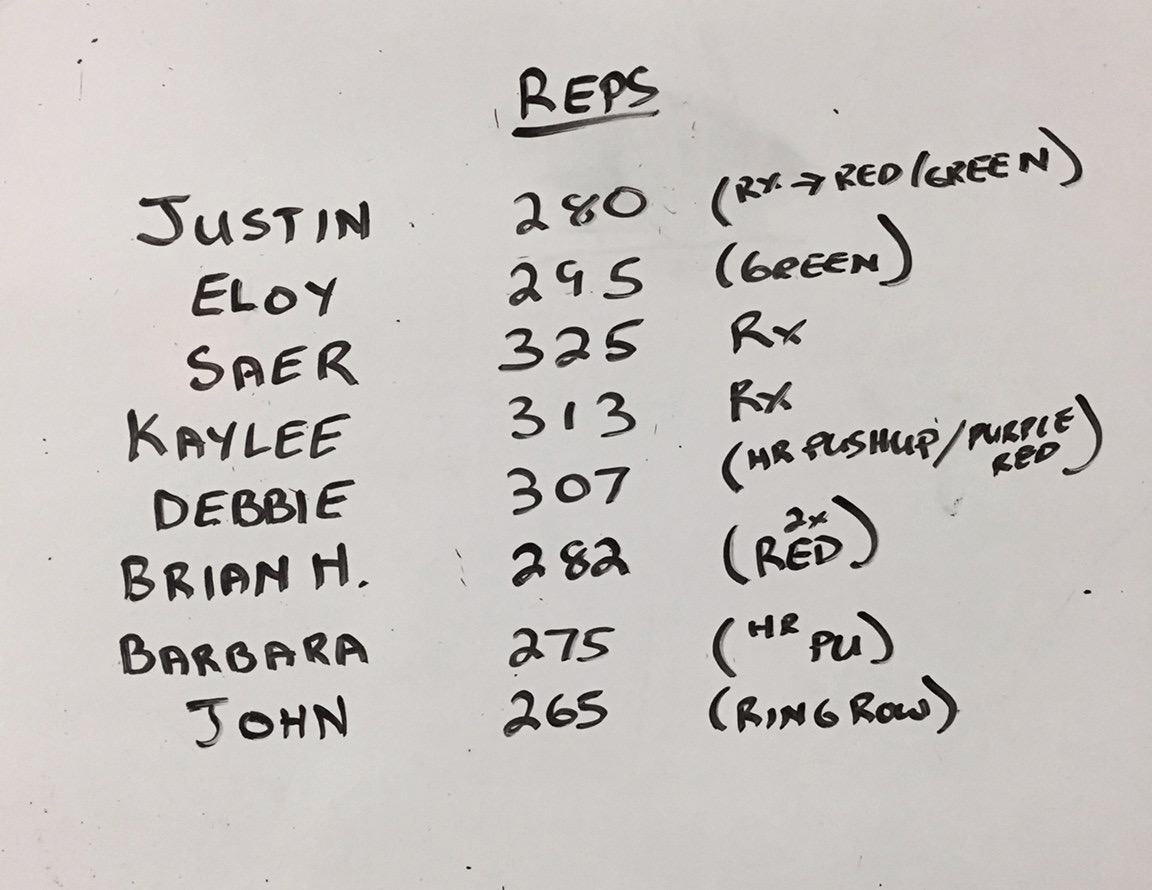 REPS
JUSTIN 280 (RX → RED/GREEN)
ELOY 295 (GREEN)
SAER 325 Rx
KAYLEE 313 Rx
DEBBIE 307 (HR PUSHUP/PURPLE RED)
BRIAN H. 282 (2x RED)
BARBARA 275 (HR PU)
JOHN 265 (RING ROW)